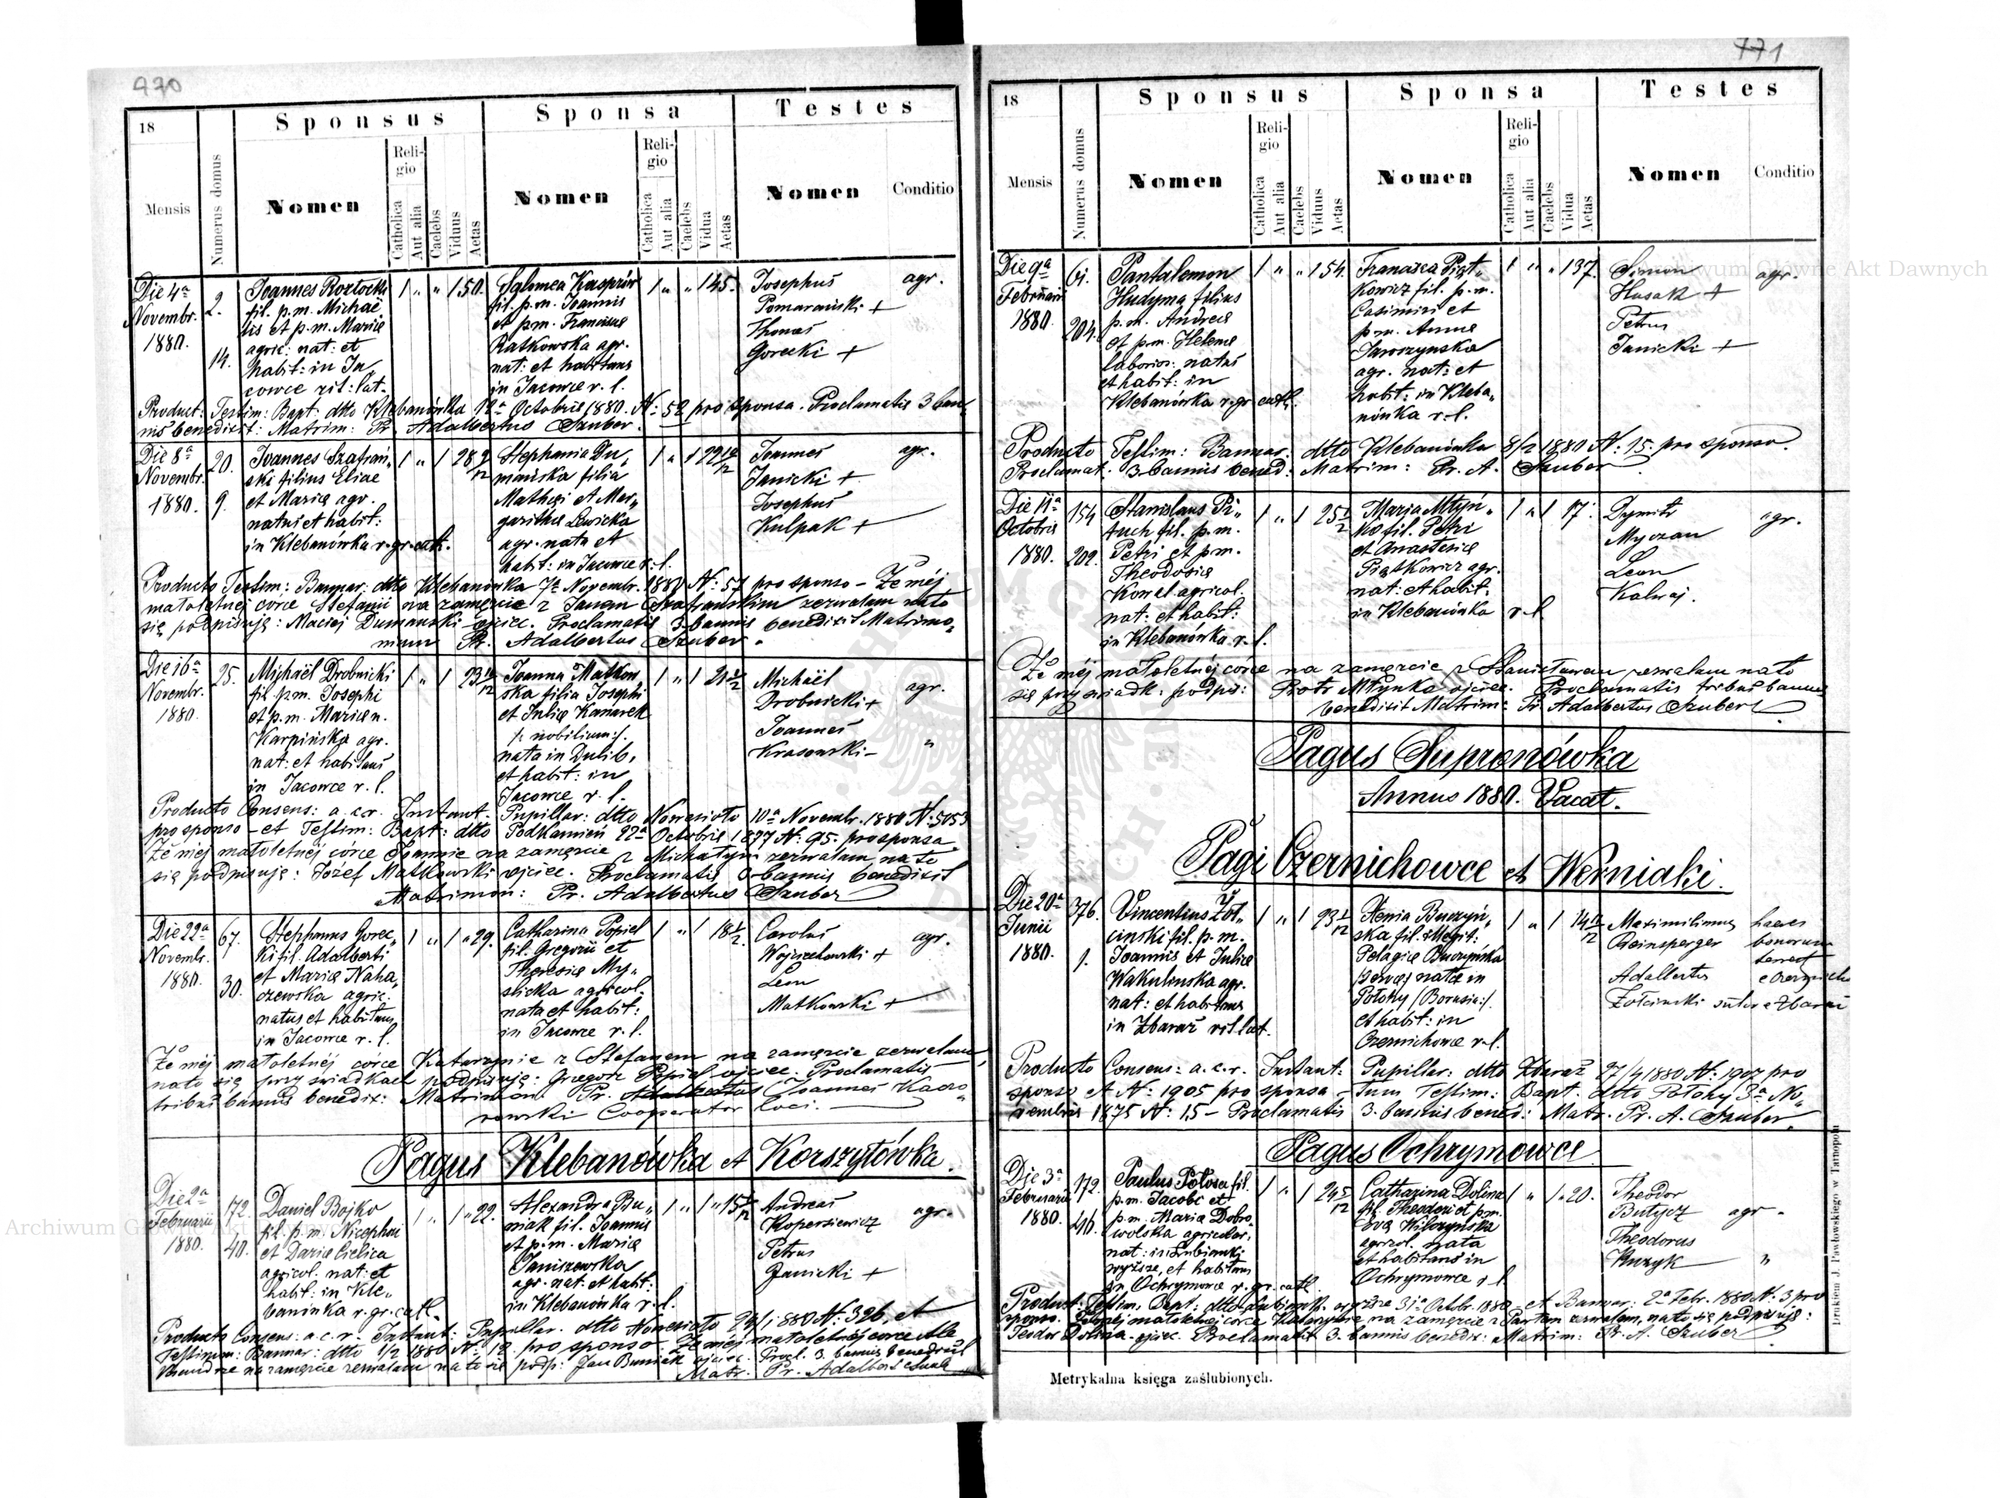 970
18
Sponsus
Sponsa
Testes
Mensis
Numerus domus
Nomen
Religio
Catholica
Aut alia
Caelebs
Viduus
Aetas
Nomen
Religio
Catholica
Aut alia
Caelebs
Vidua
Aetas
Nomen
Conditio
Die 4ª
Novembr.
1880.
2.
14.
Joannes Roztocki
fil. p.m. Michaë
lis et p.m. Mariæ
agric: nat: et
habit: in Ja
cowce rit: lat.
1 " " 1 50.
Salomea Kasprów
fil. p.m. Joannis
et p.m. Franciscæ
Ratkowska agr.
nat: et habitans
in Jacowce r. l.
1 " " 1 45.
Josephus
Pomarański +
Thomas
Gorecki +
agr.
Product: Testim: Bapt: dtto Klebanówka 12ª Octobris 1880. N: 52 pro sponsa. Proclamatis 3 ban
nis benedixit: Matrim: Pr. Adalbertus Szuber.
Die 8ª
Novembr.
1880.
20.
9.
Joannes Szafrań„
ski filius Eliae
et Mariæ agr.
natus et habit:
in Klebanówka r. gr. cath.
1 " 1 28
Stephania Du„
mańska filia
Mathæi et Mar„
garithæ Lewicka
agr. nata et
habit: in Jacowce r. l.
1 " 1 22
Joannes
Janicki +
Josephus
Kulpak +
agr.
Producto Testim: Bannar: dtto Klebanówka 7ª Novembr. 1880 N: 57 pro sponso – Że méj
małoletnéj córce Stefanii na zamęzcie z Janem Szafrańskim zezwalam na to
się podpisuję: Maciej Dumański ojciec. Proclamatis 3 bannis benedixit Matrimo„
nium Pr. Adalbertus Szuber.
Die 16ª
Novembr.
1880.
25.
Michaël Drobnicki
fil. p.m. Josephi
et p.m. Mariæ n.
Karpińska agr.
nat: et habitans
in Jacowce r. l.
1 " 1 23
Joanna Matkow
ska filia Josephi
et Juliæ Kanarek
/: nobilium :/.
nata in Dulib,
et habit: in
Jacowce r. l.
1 " 1 21
Michaël
Drobnicki +
Joannes
Krasowski –
agr.
"
Producto Consens: a. c. r. Instant. Pupillar: dtto Nowesioło 10ª Novembr. 1880 N: 5053
pro sponso – et Testim: Bapt: dtto Podkamień 22ª Octobris 1877 N: 95. pro sponsa.
Że méj małoletnéj córce Joannie na zamęzcie z Michałym zezwalam na to
się podpisuję: Józef Matkowski ojciec. Proclamatis 3 bannis benedixit
Matrimon: Pr. Adalbertus Szuber
Die 22ª
Novembr.
1880.
67.
30.
Stephanus Gorec„
ki fil. Adalberti
et Mariæ Naha„
czewska agric.
natus et habitans
in Jacowce r. l.
1 " 1 " 29.
Catharina Popiel
fil. Gregorii et
Theresiæ My„
slicka agricol.
nata et habit:
in Jacowce r. l.
1 " 1 18½.
Carolus
Wojciechowski +
Leon
Matkowski +
agr.
Że méj małoletnéj córce Katarzynie z Stefanem na zamęzcie zezwalam,
na to się przy świadkach podpisuję: Grzegorz Popiel ojciec. Proclamatis
tribus bannis benedix: Matrimon. Pr. Adalbertus Joannes
rowski Cooperator loci.
Pagus Klebanówka et Korszyłówka.
Die 2ª
Februarii
1880.
172.
40.
Daniel Bojko
fil. p.m. Nicephori
et Dariæ Cielica
agricol. nat: et
habit: in Kle„
banówka r. gr. cath.
1 " 1 " 22.
Alexandra Bu„
niak fil. Joannis
et p.m. Mariæ
Janiszewska
agr. nat: et habit:
in Klebanówka r. l.
1 " 1 " 15
Andreas
Kopersiewicz
Petrus
Janicki +
agr.
Producto Consens: a. c. r. Instant: Pupillar. dtto Nowesioło 24/1 880 N: 326, et
Testimon: Bannar: dtto 1/2 1880 N: 12 pro sponso. Że méj małoletnéj córce Ale
xandrze na zamęzcie zezwalam na to się podp: Jan Buniak ojciec. Procl. 3 bannis benedixit
Matr. Pr. Adalbert Szuber
771
18
Sponsus
Sponsa
Testes
Mensis
Numerus domus
Nomen
Religio
Catholica
Aut alia
Caelebs
Viduus
Aetas
Nomen
Religio
Catholica
Aut alia
Caelebs
Vidua
Aetas
Nomen
Conditio
Die 9ª
Februarii
1880.
61.
204.
Pantalemon
Hudyma filius
p.m. Andreæ
et p.m. Helenæ
laborios: natus
et habit: in
Klebanówka r. gr. cath.
1 " " 1 54.
Francisca Piąt„
kowicz fil. p.m.
Casimiri et
p.m. Annæ
Jaroszynska
agr. nat: et
habit: in Kleba„
nówka r. l.
1 " " 1 37.
Simon
Husak +
Petrus
Janicki +
agr.
Producto Testim: Bannar: dtto Klebanówka 8/2 1880 N: 15. pro sponso.
Proclamat. 3 bannis bened: Matrim: Pr. A. Szuber
Die 11ª
Octobris
1880.
154
202.
Stanislaus Pi„
tuch fil. p.m.
Petri et p.m.
Theodosiæ
Kowal agricol.
nat: et habit:
in Klebanówka r. l.
1 " 1 25½
Maria Młyń„
ko fil. Petri
et Anastasiæ
Piątkowicz agr.
nat: et habit:
in Klebanówka r. l.
1 " 1 17.
Dymitr
Myczan
Leon
Kalwaj.
agr.
Że méj małoletnéj córce na zamęzcie z Stanisławem zezwalam na to
się przy świadk: podpis: Piotr Młynko ojciec. Proclamatis tribus bannis
benedixit Matrim: Pr. Adalbertus Szuber
Pagus Supranówka
Annus 1880. Vacat.
Pagi Czernichowce et Werniaki.
Die 20ª
Junii
1880.
376.
1.
Vincentius Żół„
cinski fil. p.m.
Joannis et Juliæ
Wakulenska agr.
nat: et habitans
in Zbaraż rit. lat.
1 " 1 23
Xenia Buczyń„
ska fil. illegit:
Pelagiæ Buczyńska
nata in
Połohy /:Borusia:/.
et habit: in
Czernichowce r. l.
1 " 1 14
Maximilianus
Reinsperger
Adalbertus
Żółcinski
haeres
bonorum
terrest
e Czernicho
sutor e Zbaraż
Producto Consens: a. c. r. Instant: Pupillar: dtto Zbaraż 27/4 1880 N: 1907 pro
sponso et N: 1905 pro sponsa, Tum Testim: Bapt. dtto Połohy 3ª No„
vembris 1875 N: 15 – Proclamatis 3. bannis bened: Matr. Pr. A. Szuber.
Pagus Ochrymowce
Die 3ª
Februarii
1880.
172.
46.
Paulus Połosa fil.
p.m. Jacobi et
p.m. Maria Dobro„
wolska agricolar.
nat: in Łubianki
wyższe, et habitans
in Ochrymowce r. gr. cath.
1 " 1 24
Catharina Dolina
fil. Theodori et p.m.
Eva Wilczyńska
agricol. nata
et habitans in
Ochrymowce r. l.
1 " 1 " 20.
Theodor
Butycz
Theodorus
Kuzyk
agr.
"
Product: Testim. Bapt: dtto Łubianki wyższe 31ª Octbr. 1880 et Bannar: 2ª Febr. 1880 N: 3 pro
sponso. małoletnéj córce Katarzynie na zamęzcie z Pawłem zezwalam, na to się podpisuję:
Teodor Dolina ojciec. Proclamatis 3. bannis benedix: Matrim: Pr. A. Szuber
Metrykalna księga zaślubionych.
Drukiem J. Pawłowskiego w Tarnopolu
Archiwum Główne Akt Dawnych
Archiwum Główne Akt Dawnych